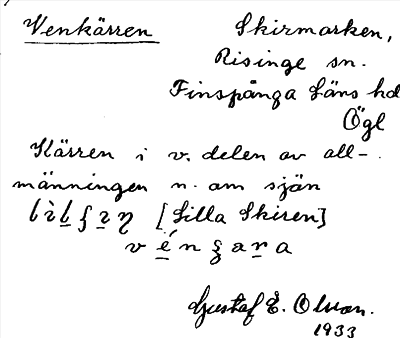 Venkärren
Skirmarken,
Risinge sn.
Finspånga läns hd
Ögl
Kärren i v. delen av all-
männingen n. om sjön
[Lilla Skiren]
Gustaf E. Olson.
1933